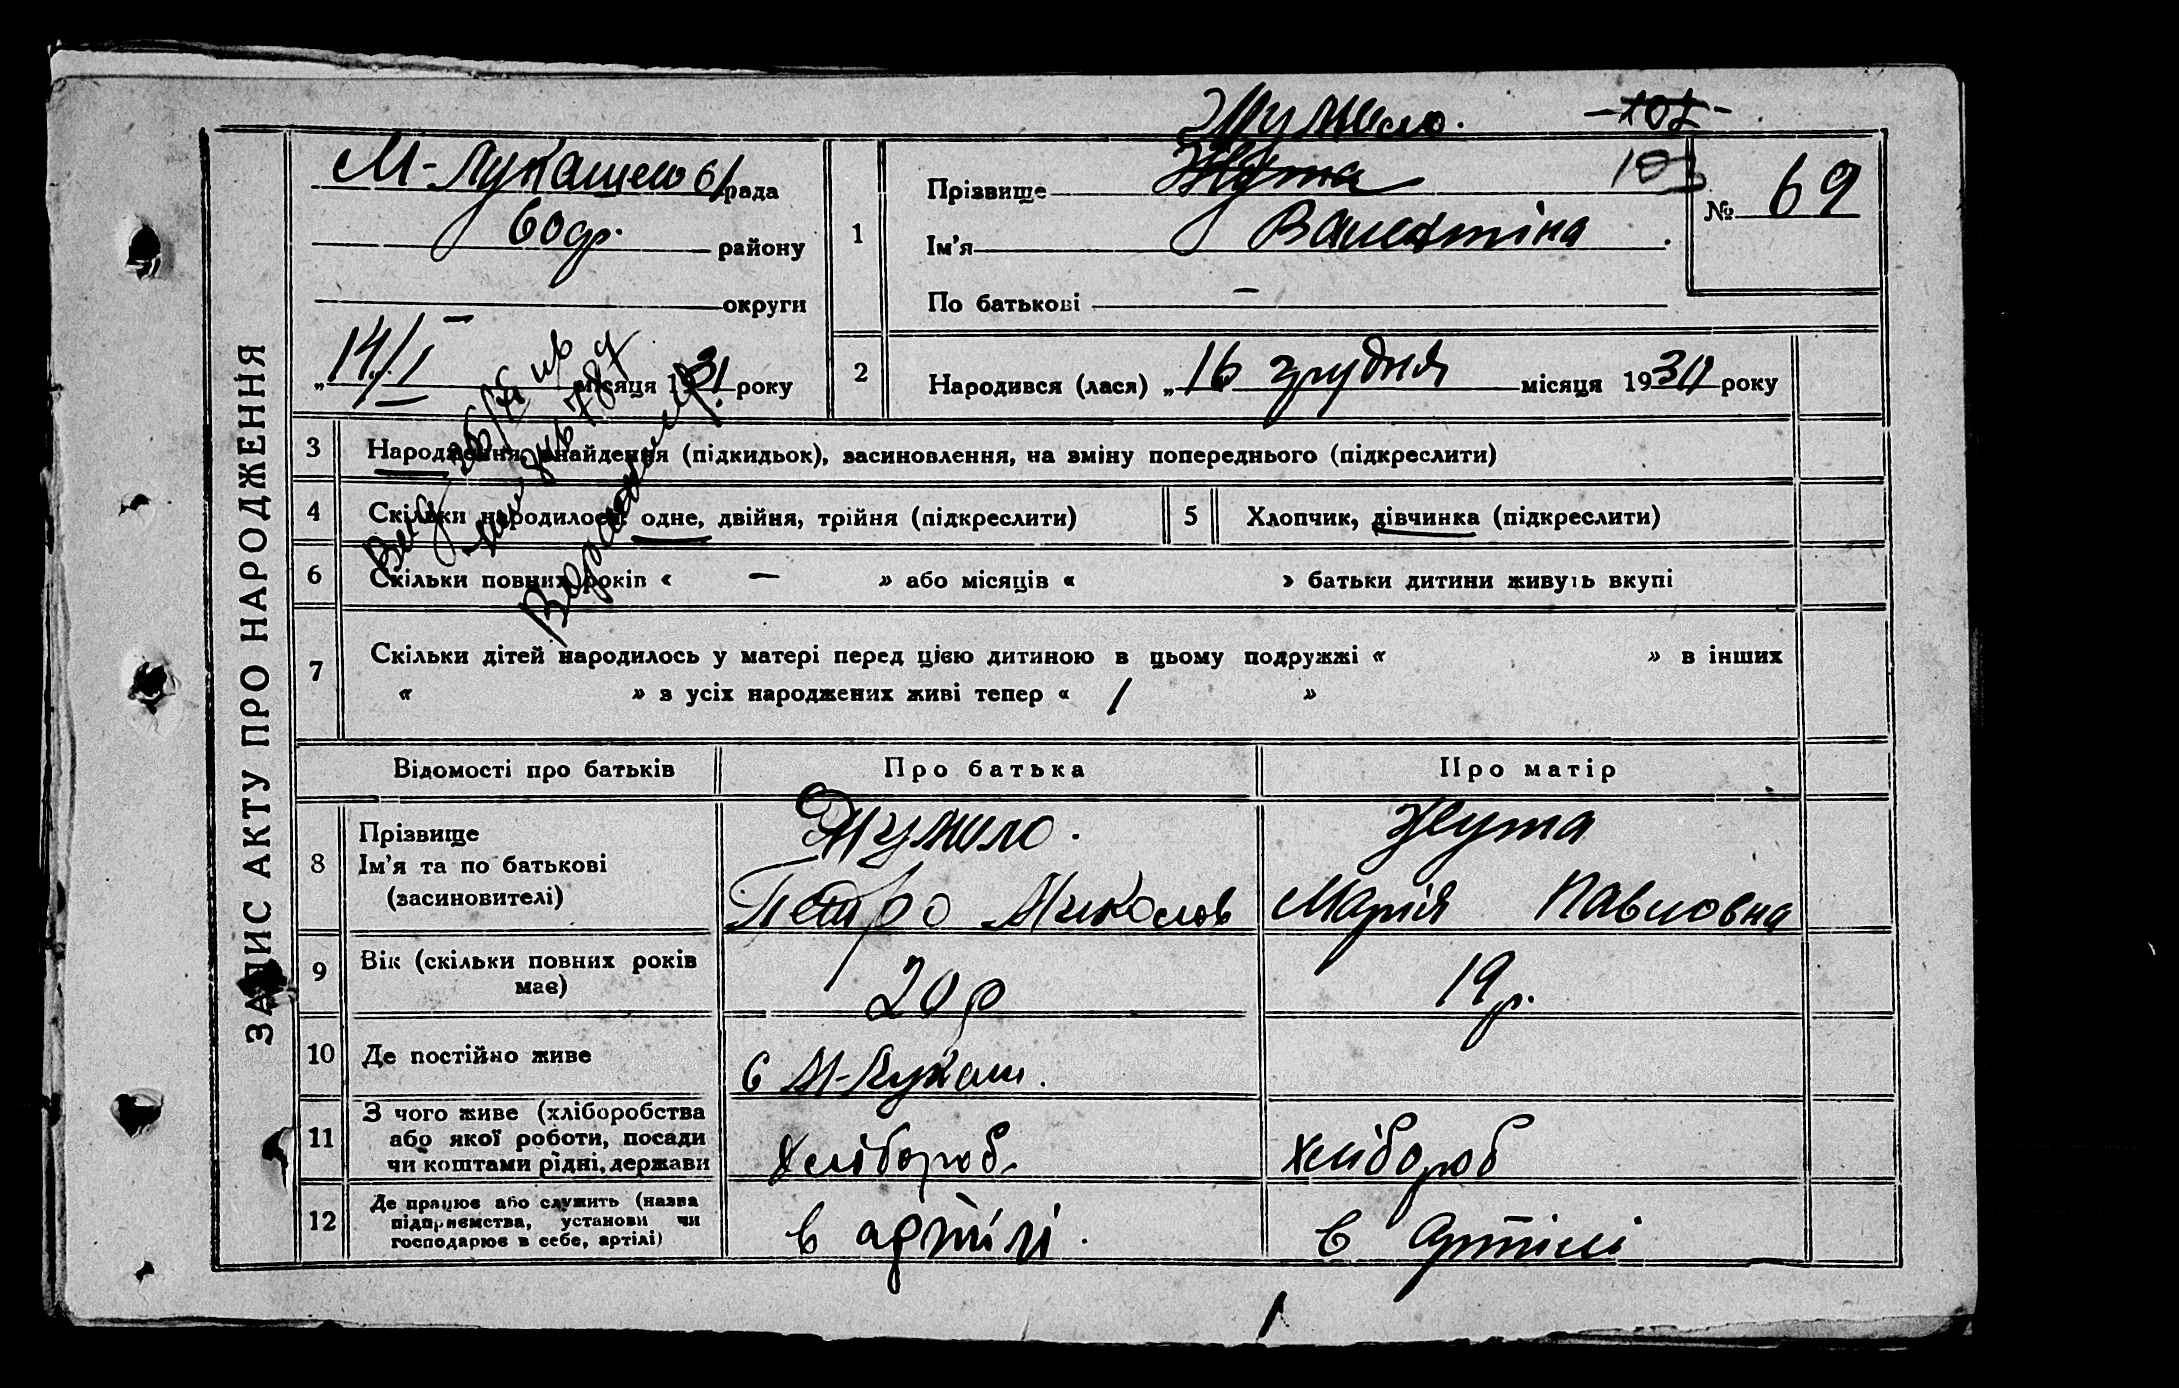 ЗАПИС АКТУ ПРО НАРОДЖЕННЯ
- 101 -
М-Лукашев рада
району
округи
„14/I місяця 1931 року
1
Прізвище Жута
Ім’я Валентіна
По батькові —
№ 69
2
Народився (лася) „16 грудня місяця 1930 року
3 Народження, знайдення (підкидьок), засиновлення, на зміну попереднього (підкреслити)
4 Скільки народилося: одне, двійня, трійня (підкреслити) 5 Хлопчик, дівчинка (підкреслити)
6 Скільки повних років « — » або місяців « » батьки дитини живуть вкупі
7 Скільки дітей народилось у матері перед цією дитиною в цьому подружжі « » в інших
« » з усіх народжених живі тепер « 1 »
Відомості про батьків Про батька Про матір
8 Прізвище
Ім’я та по батькові
(засиновителі)
Жута
Петро Миколов Марія Павловна
9 Вік (скільки повних років
має)
20 р 19 р.
10 Де постійно живе
с М-Лукаш.
11 З чого живе (хліборобства
або якої роботи, посади
чи коштами рідні, держави
хлібороб хлібороб
12 Де працює або служить (назва
підприємства, установи чи
господарює в себе, артілі)
в артілі. в артілі